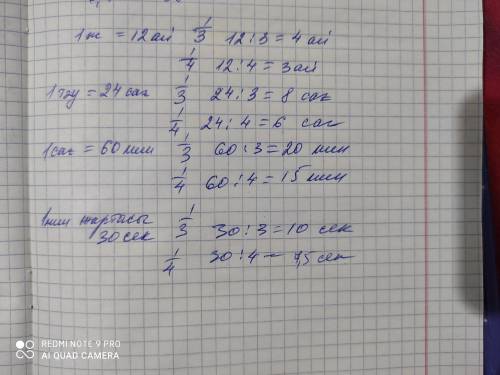 1ж = 12ай 1/3 12:3=4 ай
1/4 12:4=3ай
1тәу = 24 сағ 1/3 24:3=8 сағ
1/4 24:4=6 сағ
1сағ = 60 мин 1/3 60:3=20 мин
1/4 60:4=15 мин
1мин жартасы 1/3 30:3=10 сек
30 сек
1/4 30:4= 7,5 сек
REDMI NOTE 9 PRO
AI QUAD CAMERA